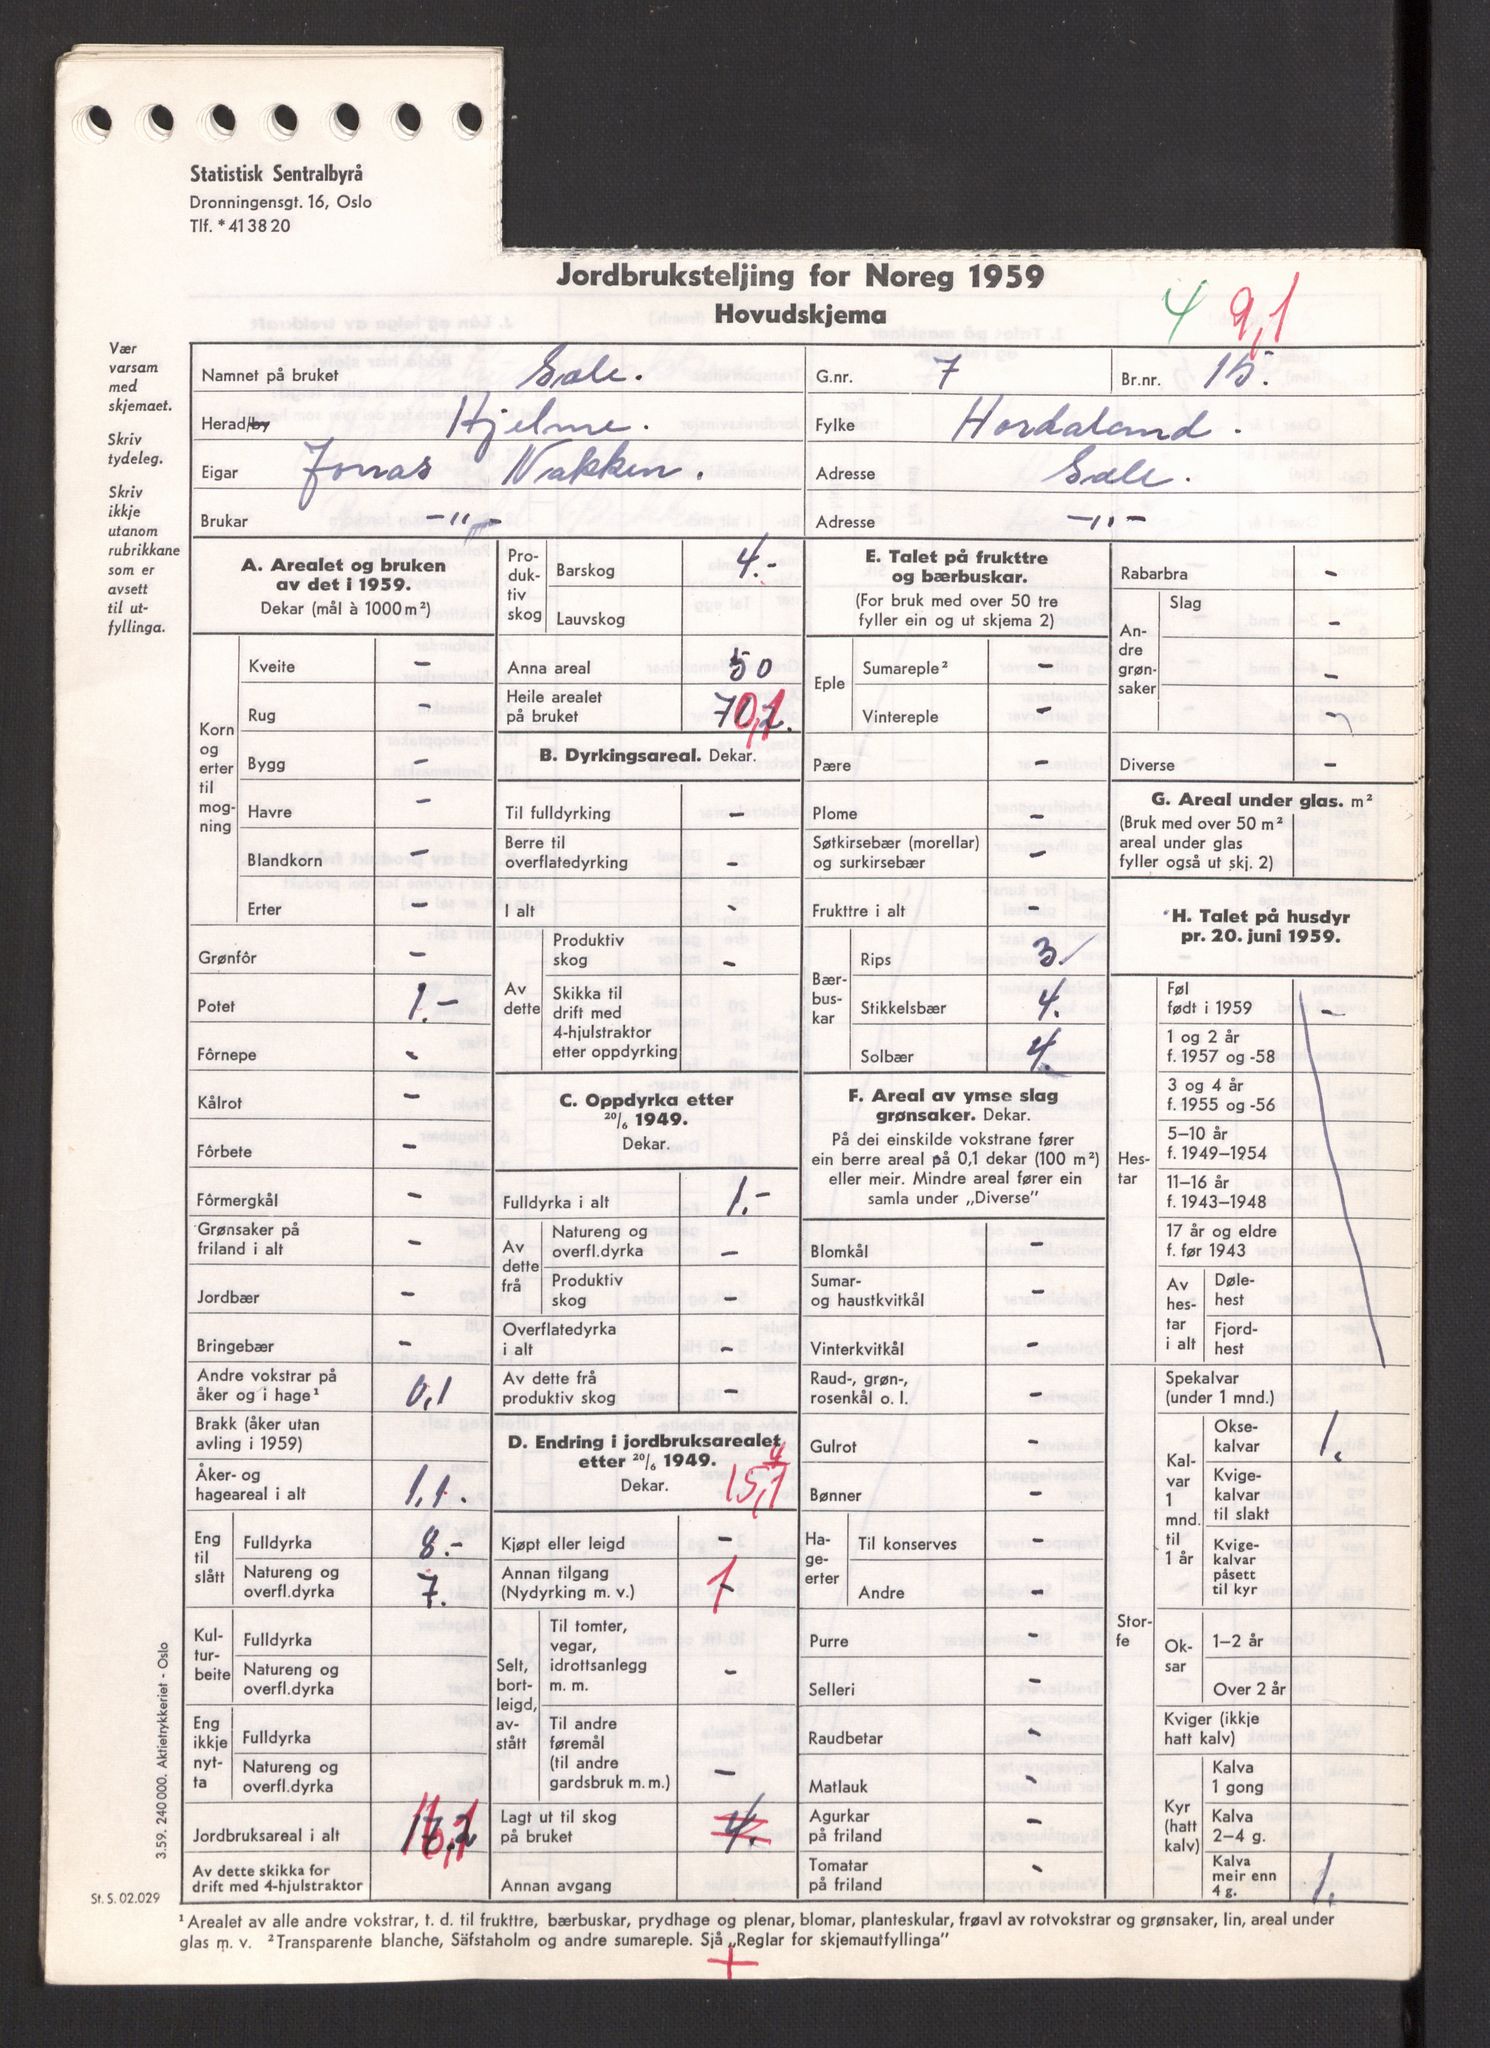 Statistisk Sentralbyrå
Dronningensgt. 16, Oslo
Tlf. *41 38 20
Jordbruksteljing for Noreg 1959
Hovudskjema
4 9,1
Vær
varsam
med
skjemaet.
Skriv
tydeleg.
Skriv
ikkje
utanom
rubrikkane
som er
avsett
til ut-
fyllinga.
Namnet på bruket Sæle. G.nr. 7 Br.nr. 15.
Herad/by Hjelme. Fylke Hordaland.
Eigar Jonas Nakken. Adresse Sæle.
Brukar -"- Adresse -"-
A. Arealet og bruken
av det i 1959.
Dekar (mål à 1000 m²)
Korn
og
erter
til
mog-
ning
Kveite -
Rug -
Bygg -
Havre -
Blandkorn -
Erter -
Grønfôr -
Potet 1.-
Fôrnepe -
Kålrot -
Fôrbete -
Fôrmergkål -
Grønsaker på
friland i alt -
Jordbær -
Bringebær -
Andre vokstrar på
åker og i hage¹ 0,1
Brakk (åker utan
avling i 1959)
Åker- og
hageareal i alt 1,1.
Eng
til
slått
Fulldyrka 8.-
Natureng og
overfl.dyrka 7.
Kul-
tur-
beite
Fulldyrka
Natureng og
overfl.dyrka
Eng
ikkje
nyt-
ta
Fulldyrka
Natureng og
overfl.dyrka
Jordbruksareal i alt 16,1
Av dette skikka for
drift med 4-hjulstraktor
Pro-
duk-
tiv
skog
Barskog 4.-
Lauvskog
Anna areal 50
Heile arealet
på bruket 70,1
B. Dyrkingsareal. Dekar.
Til fulldyrking -
Berre til
overflatedyrking -
I alt -
Av
dette
Produktiv
skog -
Skikka til
drift med
4-hjulstraktor
etter oppdyrking
C. Oppdyrka etter
20/6 1949.
Dekar.
Fulldyrka i alt 1.-
Av
dette
frå
Natureng og
overfl.dyrka -
Produktiv
skog -
Overflatedyrka
i alt -
Av dette frå
produktiv skog -
D. Endring i jordbruksarealet
etter 20/6 1949.
Dekar. 15,1
Kjøpt eller leigd -
Annan tilgang
(Nydyrking m. v.) 1
Selt,
bort-
leigd,
av-
stått
Til tomter,
vegar,
idrottsanlegg
m. m. -
Til andre
føremål
(til andre
gardsbruk m. m.) -
Lagt ut til skog
på bruket 4.
Annan avgang
E. Talet på frukttre
og bærbuskar.
(For bruk med over 50 tre
fyller ein og ut skjema 2)
Eple
Sumareple² -
Vintereple -
Pære -
Plome -
Søtkirsebær (morellar)
og surkirsebær -
Frukttre i alt -
Bær-
bus-
kar
Rips 3.
Stikkelsbær 4.
Solbær 4.
F. Areal av ymse slag
grønsaker. Dekar.
På dei einskilde vokstrane fører
ein berre areal på 0,1 dekar (100 m²)
eller meir. Mindre areal fører ein
samla under „Diverse"
Blomkål -
Sumar-
og haustkvitkål -
Vinterkvitkål -
Raud-, grøn-,
rosenkål o. l. -
Gulrot -
Bønner -
Ha-
ge-
erter
Til konserves -
Andre -
Purre -
Selleri -
Raudbetar -
Matlauk -
Agurkar
på friland -
Tomatar
på friland -
Rabarbra -
An-
dre
grøn-
saker
Slag
-
-
-
Diverse -
G. Areal under glas. m²
(Bruk med over 50 m²
areal under glas
fyller også ut skj. 2)
H. Talet på husdyr
pr. 20. juni 1959.
Hes-
tar
Føl
født i 1959 -
1 og 2 år
f. 1957 og -58
3 og 4 år
f. 1955 og -56
5–10 år
f. 1949–1954
11–16 år
f. 1943–1948
17 år og eldre
f. før 1943
Av
hes-
tar
i alt
Døle-
hest
Fjord-
hest
Stor-
fe
Spekalvar
(under 1 mnd.)
Kal-
var
1
mnd.
til
1 år
Okse-
kalvar 1.
Kvige-
kalvar
til slakt
Kvige-
kalvar
påsett
til kyr
Ok-
sar
1–2 år
Over 2 år
Kviger (ikkje
hatt kalv)
Kyr
(hatt
kalv)
Kalva
1 gong
Kalva
2–4 g.
Kalva
meir enn
4 g. 1.
3.59. 240 000. Aktietrykkeriet - Oslo
St. S. 02.029
¹ Arealet av alle andre vokstrar, t. d. til frukttre, bærbuskar, prydhage og plenar, blomar, planteskular, frøavl av rotvokstrar og grønsaker, lin, areal under
glas m. v. ² Transparente blanche, Säfstaholm og andre sumareple. Sjå „Reglar for skjemautfyllinga"